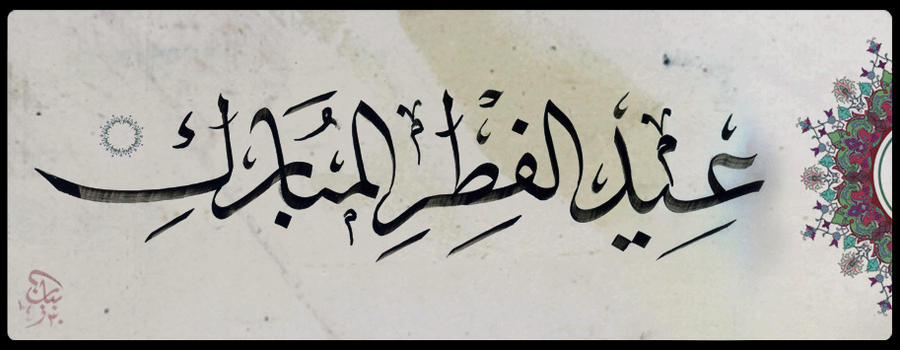 عِيْدُ الفِطْرِ المُبَارَكِ